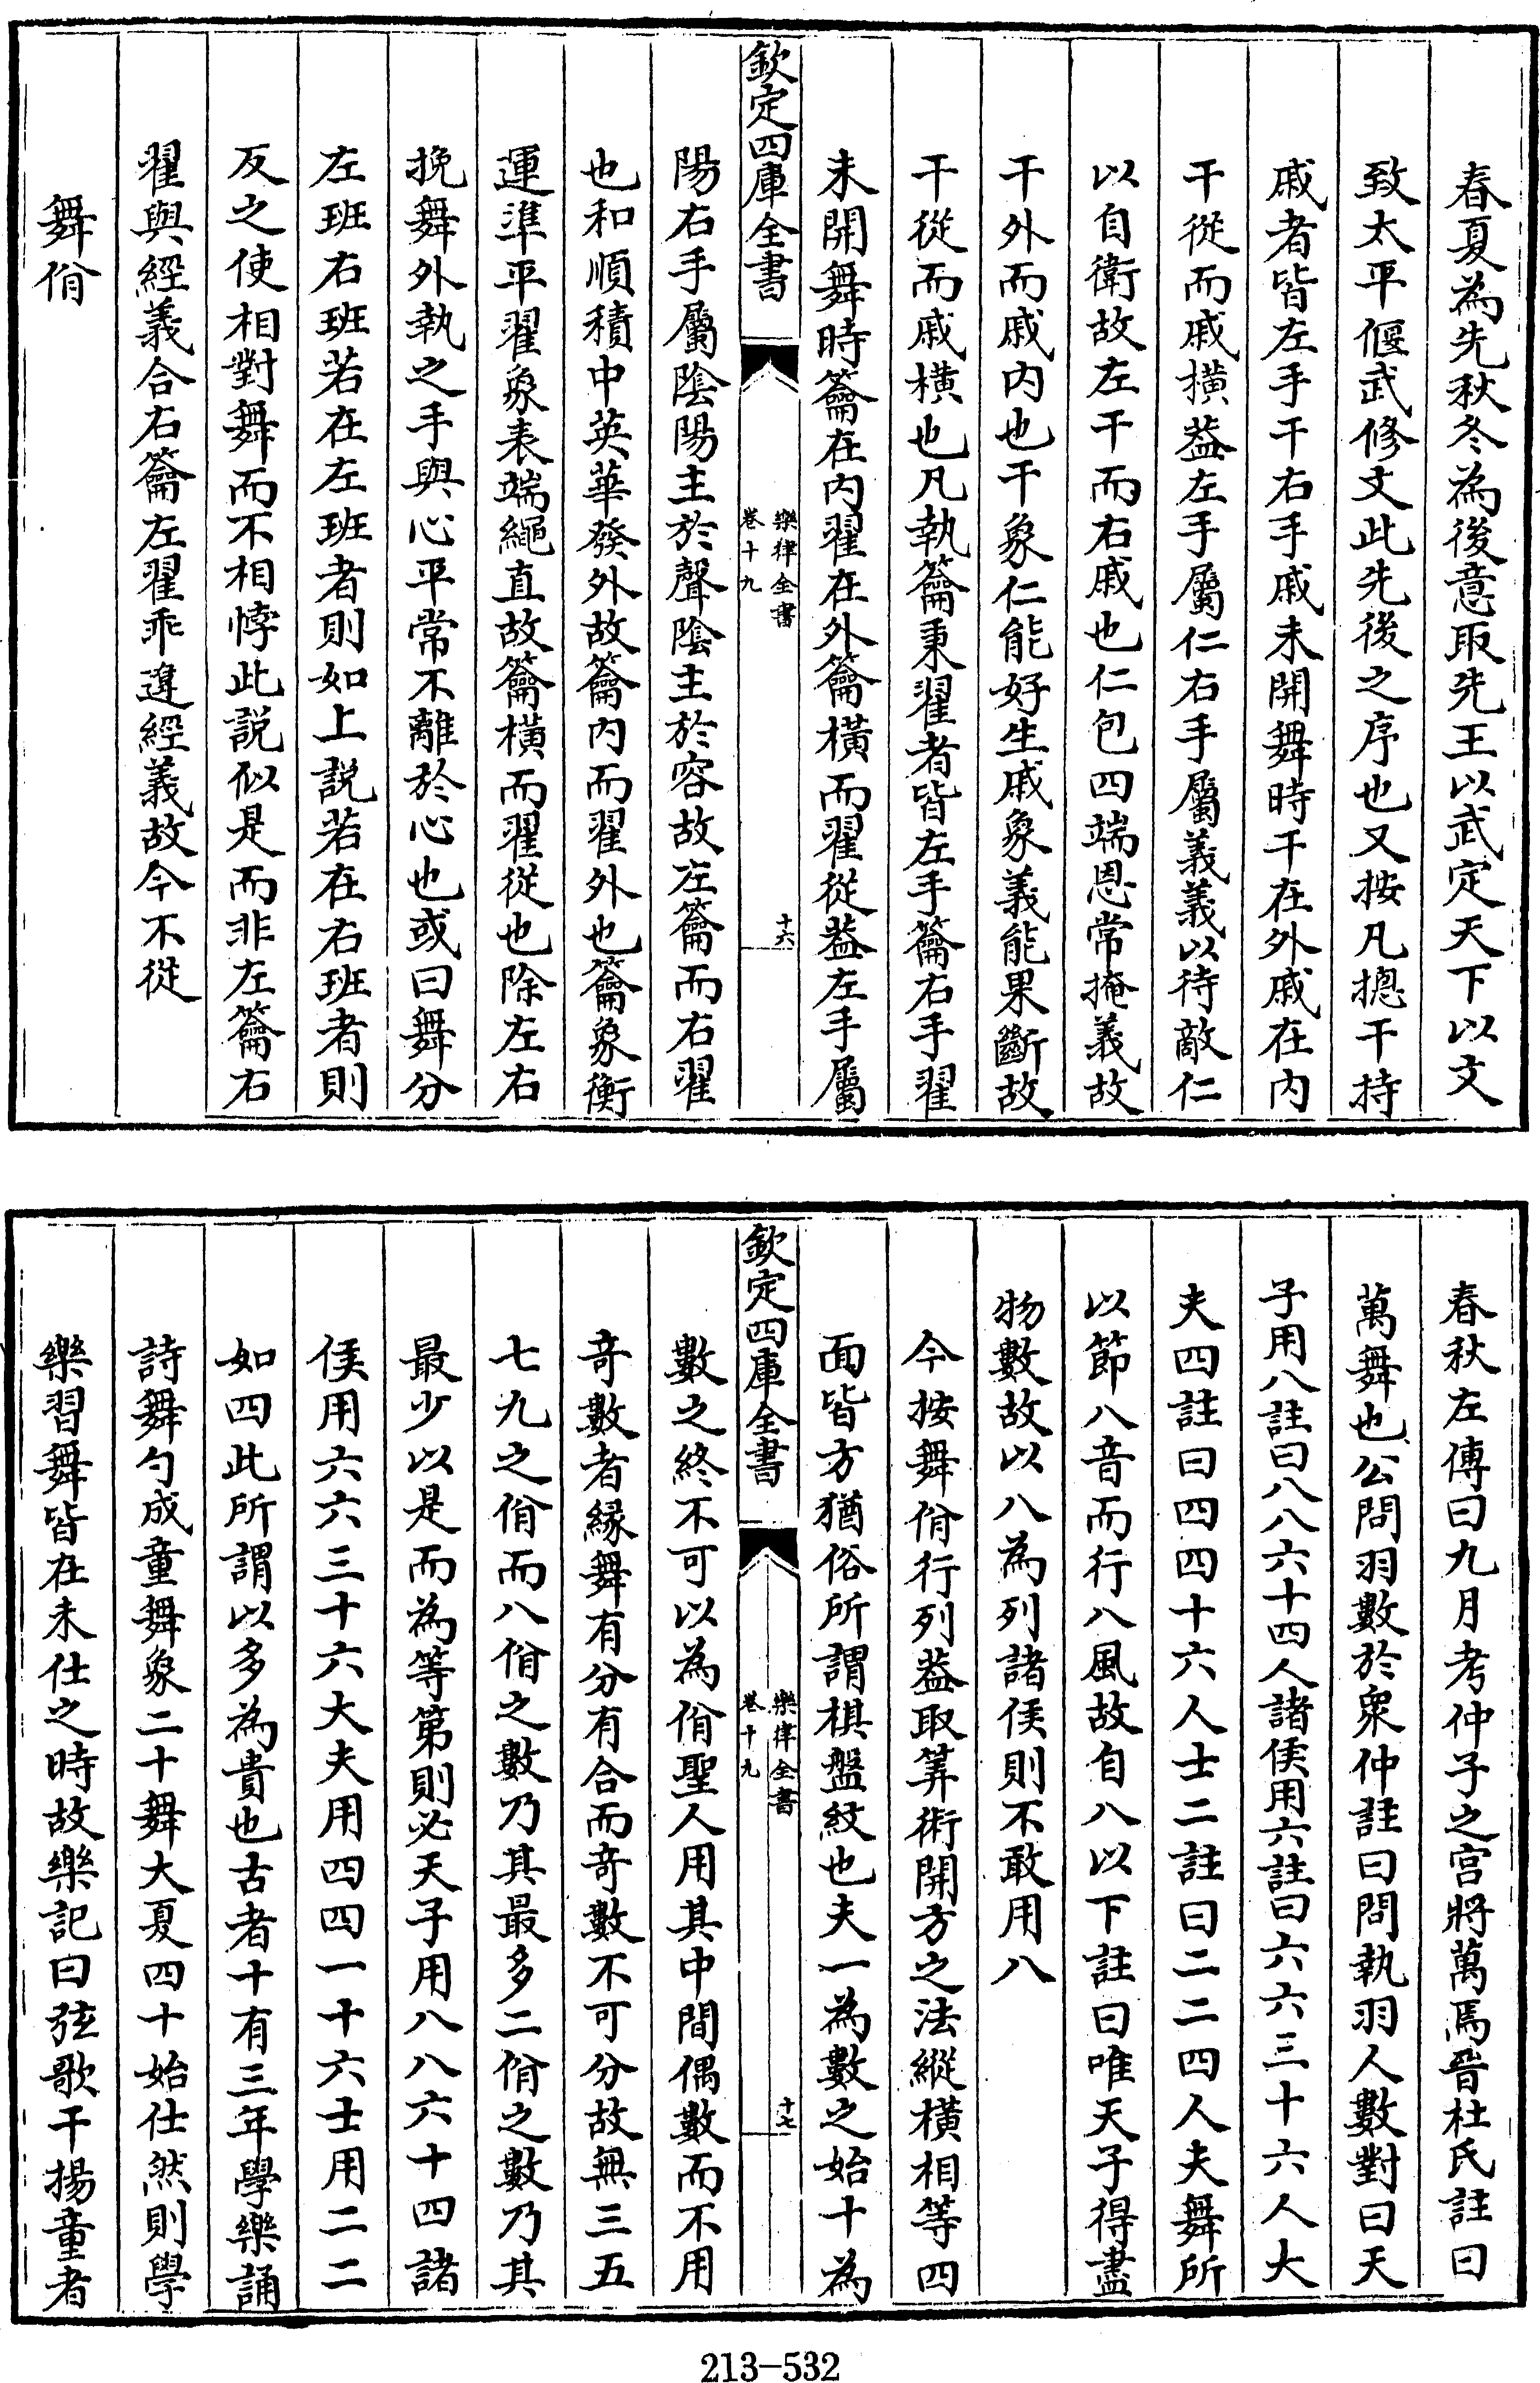 春夏為先秋冬為後意取先王以武定天下以文
致太平偃武修文此先後之序也又按凡摠干持
戚者皆左手干右手戚未開舞時干在外戚在内
干從而戚横葢左手屬仁右手屬義義以待敵仁
以自衛故左干而右戚也仁包四端恩常掩義故
干外而戚内也干象仁能好生戚象義能果斷故
干從而戚横也凡執籥秉翟者皆左手籥右手翟
未開舞時籥在内翟在外籥横而翟從葢左手屬
欽定四庫全書
樂律全書
卷十九
十六
陽右手屬陰陽主於聲陰主於容故左籥而右翟
也和順積中英華發外故籥内而翟外也籥象衡
運準平翟象表端繩直故籥横而翟從也除左右
挽舞外執之手與心平常不離於心也或曰舞分
左班右班若在左班者則如上説若在右班者則
反之使相對舞而不相悖此説似是而非左籥右
翟與經義合右籥左翟乖違經義故今不從
舞佾
春秋左傳曰九月考仲子之宫將萬焉晉杜氏註曰
萬舞也公問羽數於衆仲註曰問執羽人數對曰天
子用八註曰八八六十四人諸侯用六註曰六六三十六人大
夫四註曰四四十六人士二註曰二二四人夫舞所
以節八音而行八風故自八以下註曰唯天子得盡
物數故以八為列諸侯則不敢用八
今按舞佾行列葢取筭術開方之法縱横相等四
面皆方猶俗所謂棋盤紋也夫一為數之始十為
欽定四庫全書
樂律全書
卷十九
十七
數之終不可以為佾聖人用其中間偶數而不用
奇數者縁舞有分有合而奇數不可分故無三五
七九之佾而八佾之數乃其最多二佾之數乃其
最少以是而為等第則必天子用八八六十四諸
侯用六六三十六大夫用四四一十六士用二二
如四此所謂以多為貴也古者十有三年學樂誦
詩舞勺成童舞象二十舞大夏四十始仕然則學
樂習舞皆在未仕之時故樂記曰弦歌干揚童者
213-532